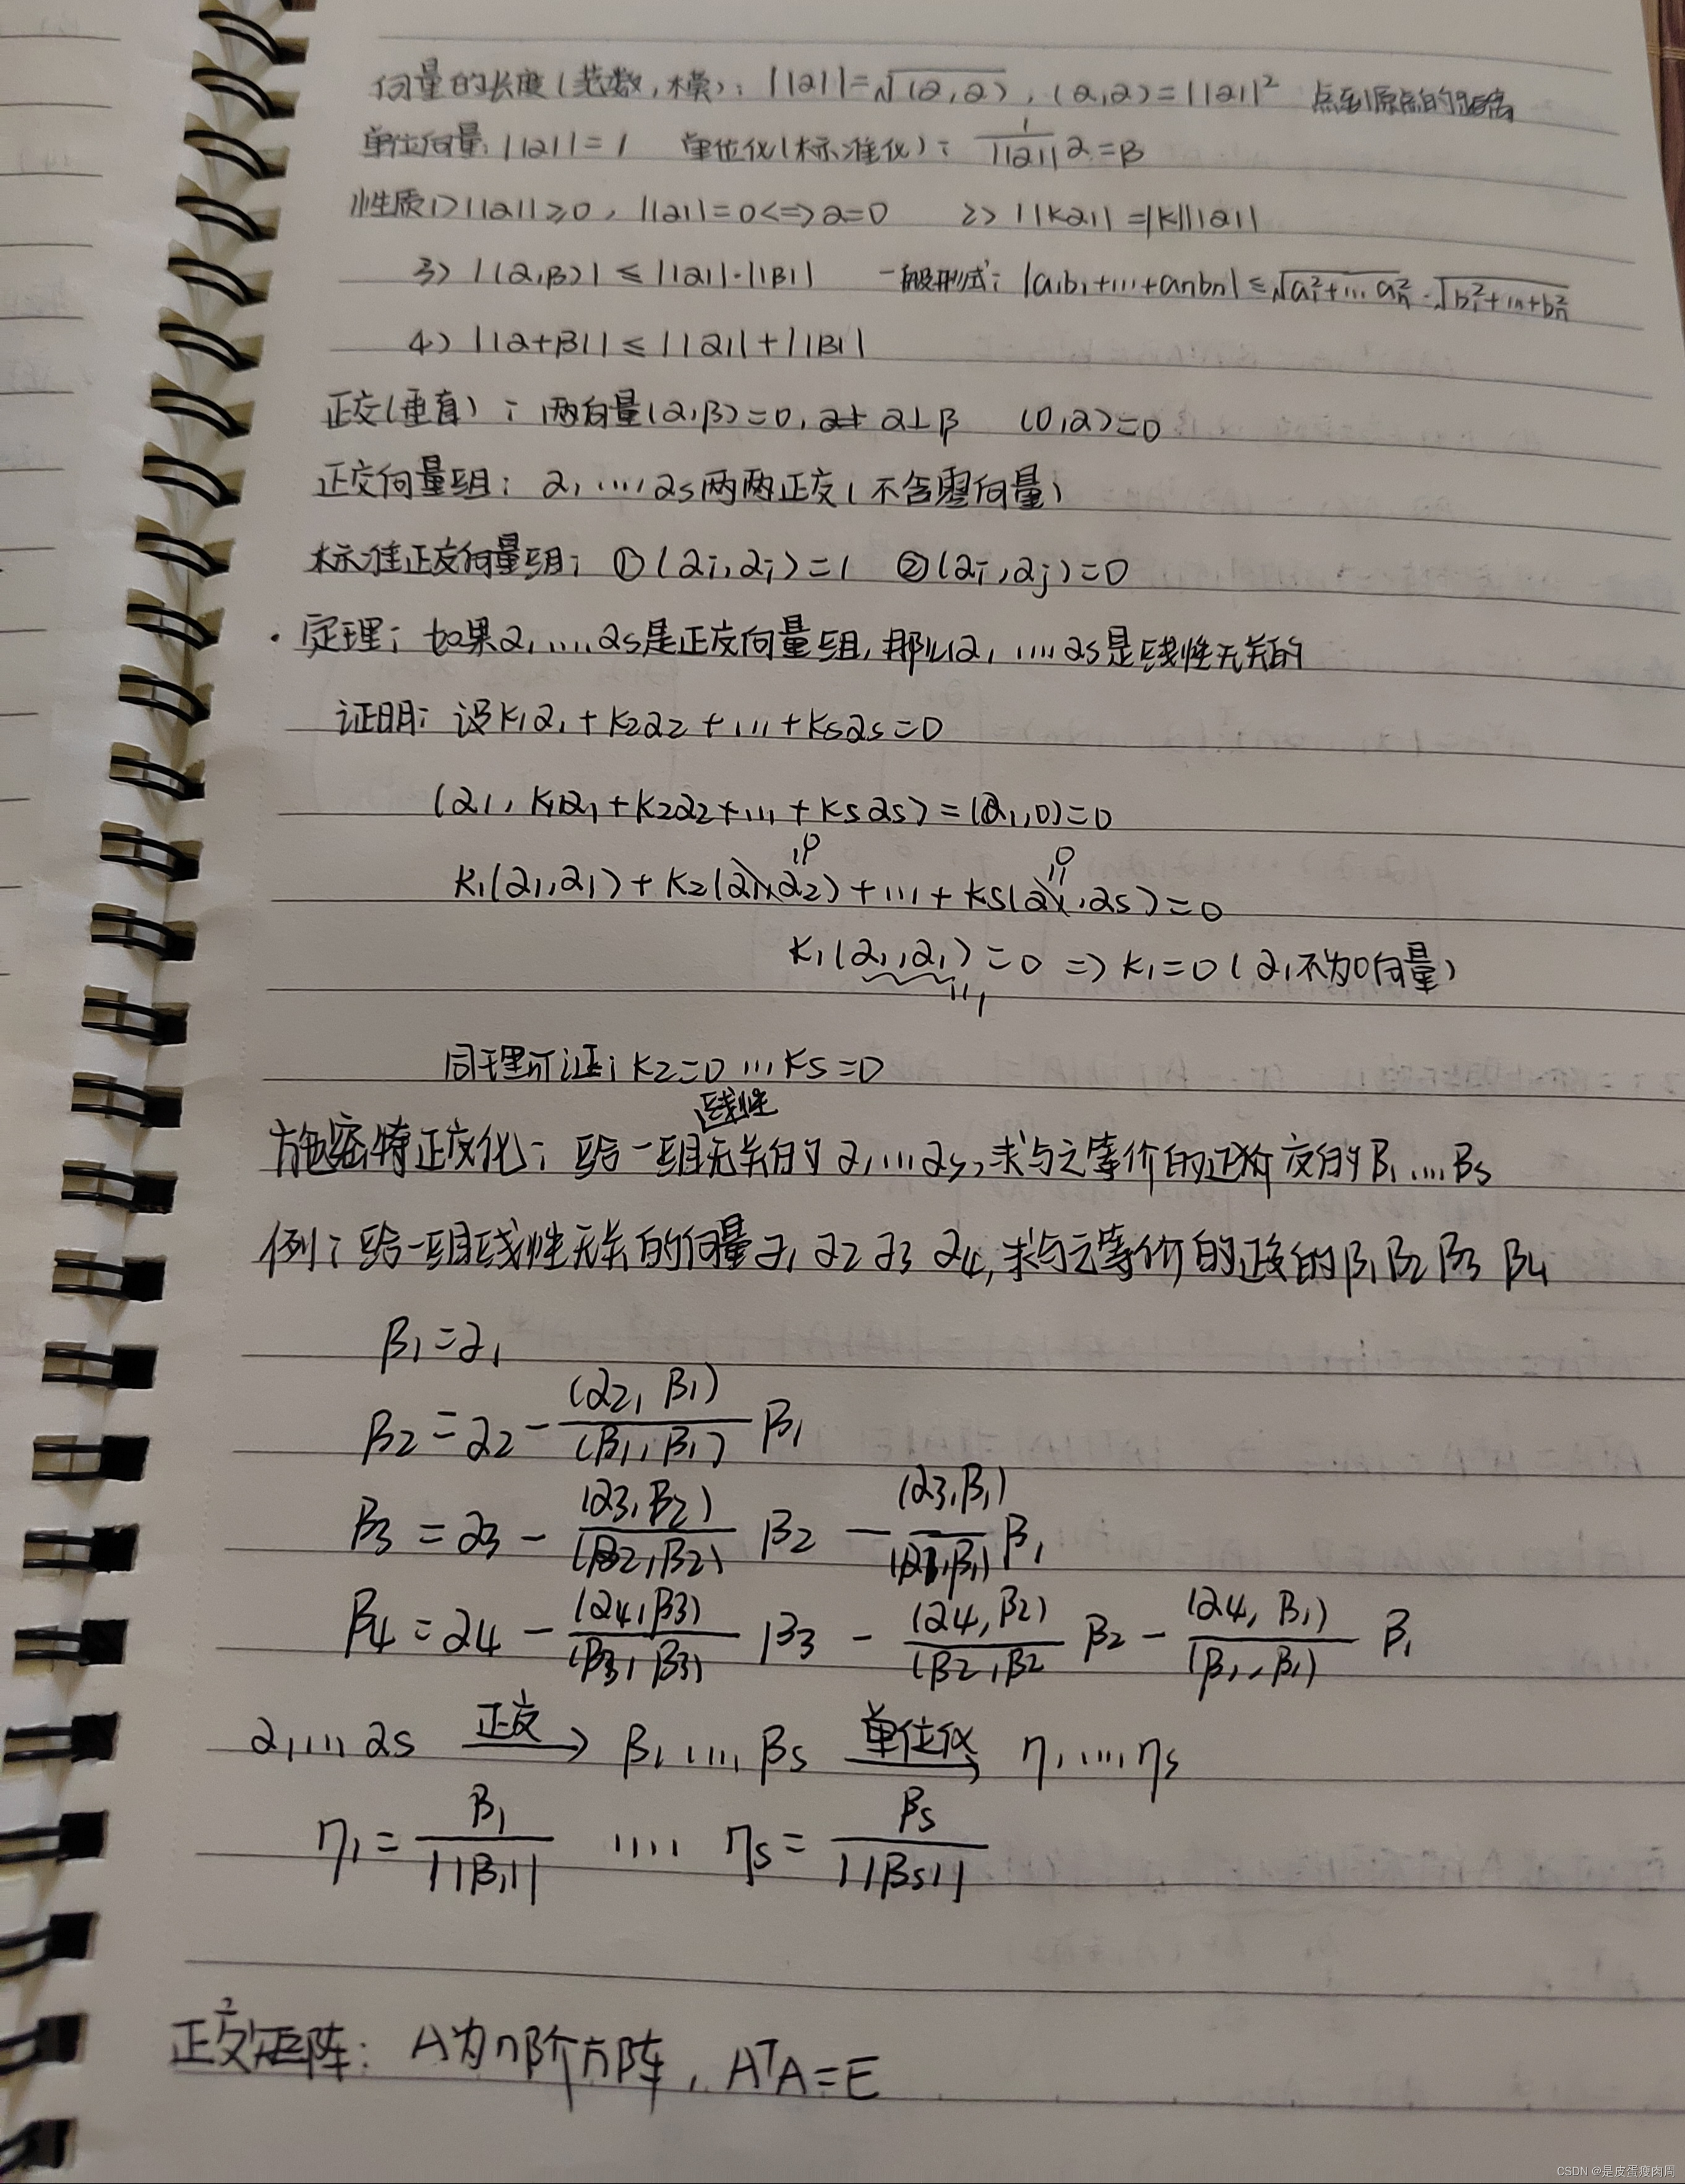 向量的长度(范数,模): ||α||=√(α,α), (α,α)=||α||² 点到原点的距离
单位向量: ||α||=1 单位化(标准化): 1/||α|| α=β
性质1>||α||≥0, ||α||=0<=>α=0 2>||kα||=|k|||α||
3>|(α,β)|≤||α||·||β|| 一般形式: |a₁b₁+...+aₙbₙ|≤√a₁²+...aₙ²·√b₁²+...+bₙ²
4>||α+β||≤||α||+||β||
正交(垂直): 两向量(α,β)=0, α⊥β (0,α)=0
正交向量组: α₁....αs两两正交(不含零向量)
标准正交向量组: ①(αi,αi)=1 ②(αi,αj)=0
·定理: 如果α₁....αs是正交向量组,那么α₁....αs是线性无关的
证明: 设k₁α₁+k₂α₂+...+ksαs=0
(α₁, k₁α₁+k₂α₂+...+ksαs)=(α₁,0)=0
0 0
k₁(α₁,α₁)+k₂(α₁,α₂)+...+ks(α₁,αs)=0
k₁(α₁,α₁)=0 => k₁=0(α₁不为0向量)
同理可证: k₂=0 ...ks=0
线性
施密特正交化: 给一组无关的α₁...αs,求与之等价的正交的β₁....βs
例: 给一组线性无关的向量α₁ α₂ α₃ α₄,求与之等价的正交的β₁β₂β₃ β₄
β₁=α₁
β₂=α₂-(α₂,β₁)/(β₁,β₁) β₁
β₃=α₃-(α₃,β₂)/(β₂,β₂) β₂-(α₃,β₁)/(β₁,β₁) β₁
β₄=α₄-(α₄,β₃)/(β₃,β₃) β₃-(α₄,β₂)/(β₂,β₂ β₂-(α₄,β₁)/(β₁,β₁) β₁
α₁....αs 正交→ β₁....βs 单位化→ η₁....ηs
η₁=β₁/||β₁|| .... ηs=βs/||βs||
正交矩阵: A为n阶方阵, AᵀA=E
CSDN @是皮蛋瘦肉周